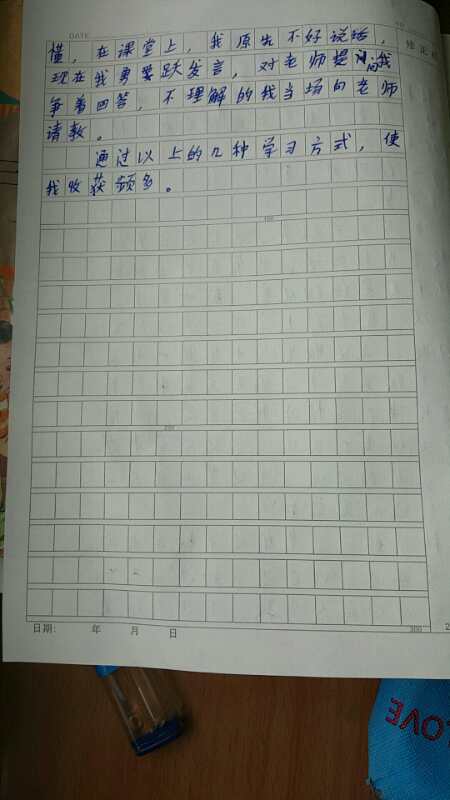 DATE
懂,在课堂上,我原先不好说话,
现在我勇跃发言,对老师提问我
争着回答,不理解的我当场向老师
请教。
通过以上的几种学习方式,使
我收获频多。
100
200
日期: 年 月 日
300
LOVE